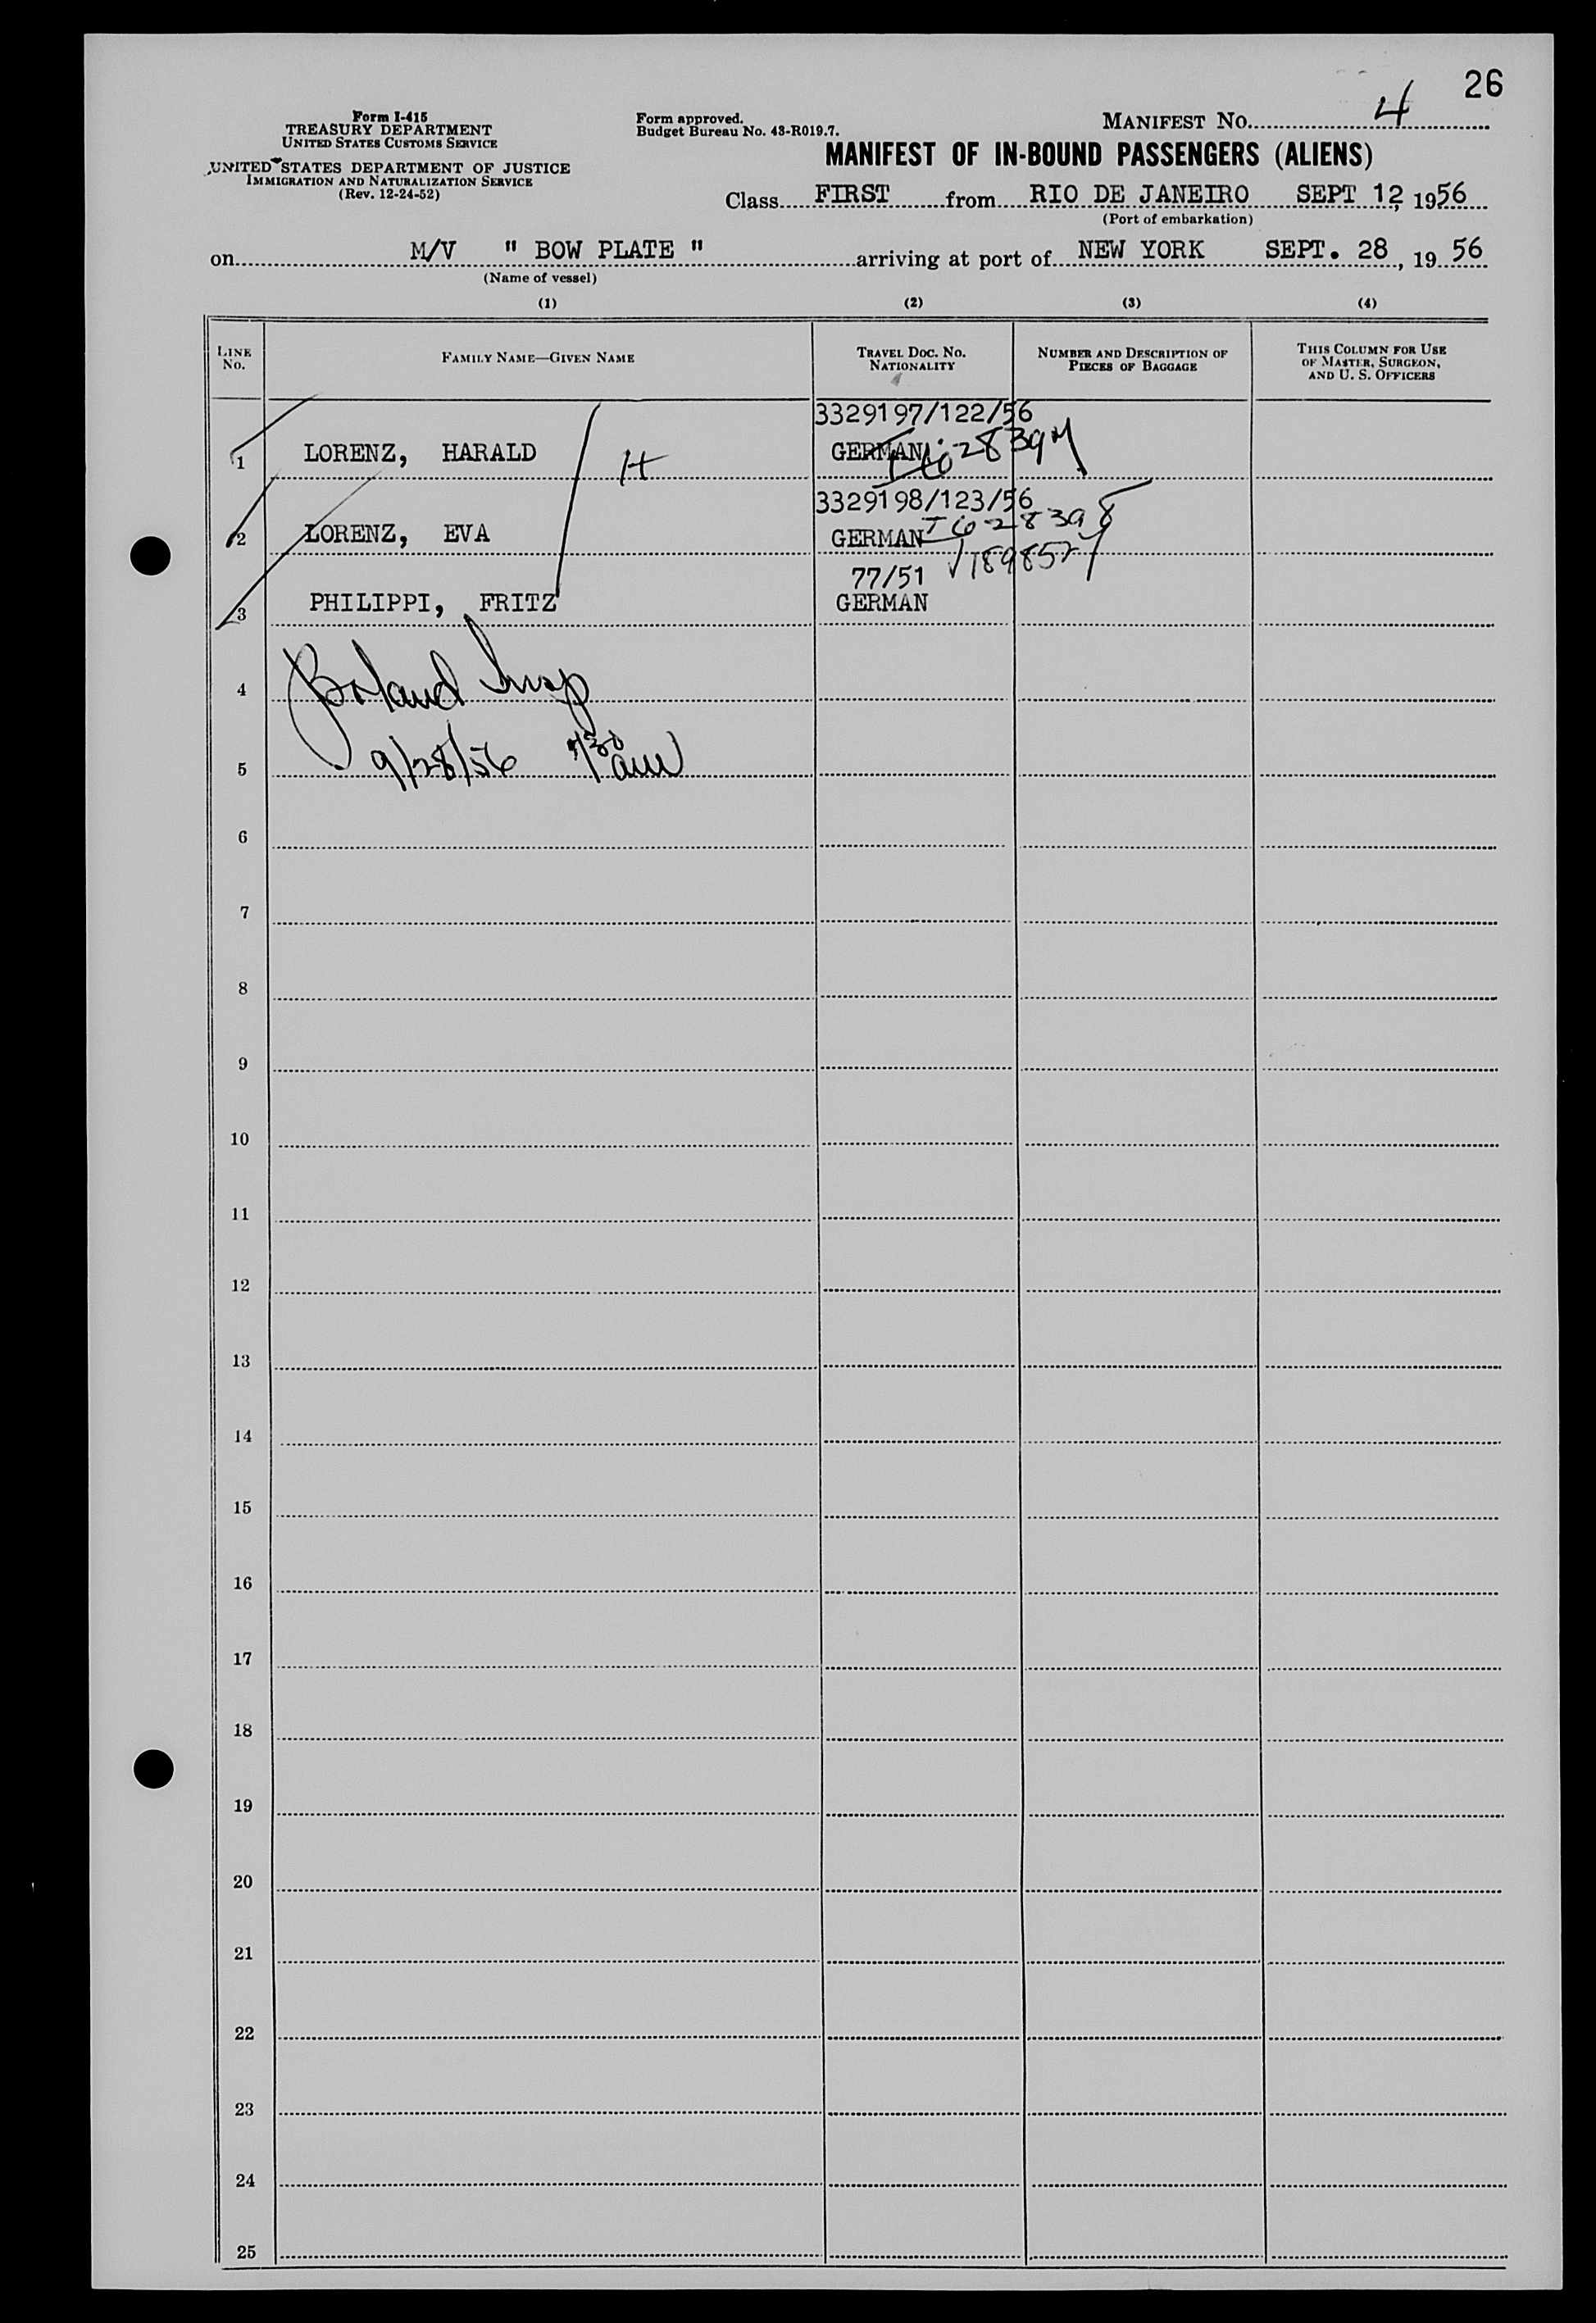 26
Form I-415
TREASURY DEPARTMENT
UNITED STATES CUSTOMS SERVICE
UNITED STATES DEPARTMENT OF JUSTICE
IMMIGRATION AND NATURALIZATION SERVICE
(Rev. 12-24-52)
Form approved.
Budget Bureau No. 43-R019.7.
MANIFEST NO. 4
MANIFEST OF IN-BOUND PASSENGERS (ALIENS)
Class FIRST from RIO DE JANEIRO SEPT 12, 1956
(Port of embarkation)
on M/V " BOW PLATE " arriving at port of NEW YORK SEPT. 28, 19 56
(Name of vessel)
(1) (2) (3) (4)
LINE NO.
FAMILY NAME—GIVEN NAME
TRAVEL DOC. NO.
NATIONALITY
NUMBER AND DESCRIPTION OF
PIECES OF BAGGAGE
THIS COLUMN FOR USE
OF MASTER, SURGEON,
AND U. S. OFFICERS
3329197/122/56
1 LORENZ, HARALD GERMAN
3329198/123/56
2 LORENZ, EVA GERMAN
77/51
3 PHILIPPI, FRITZ GERMAN
4
5 9/28/56 am
6
7
8
9
10
11
12
13
14
15
16
17
18
19
20
21
22
23
24
25